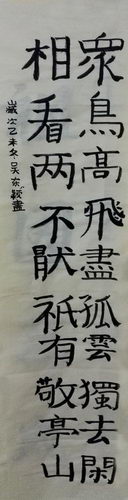 眾鳥高飛盡孤雲獨去閑
相看两不厭祇有敬亭山
歲次乙未冬吴东颖書